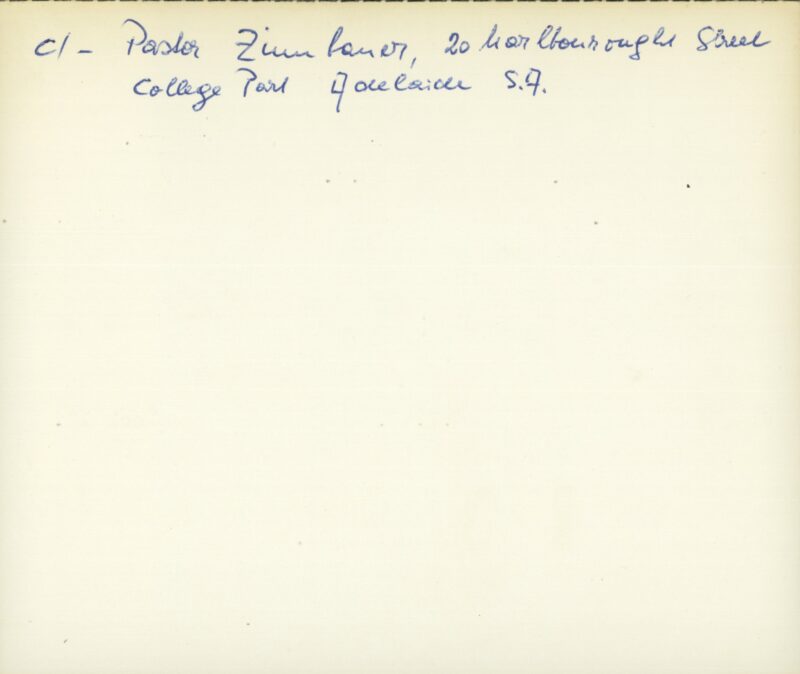 c/- Pastor Zinnbauer, 20 Marlbourought Street
College Park Adelaide S.A.